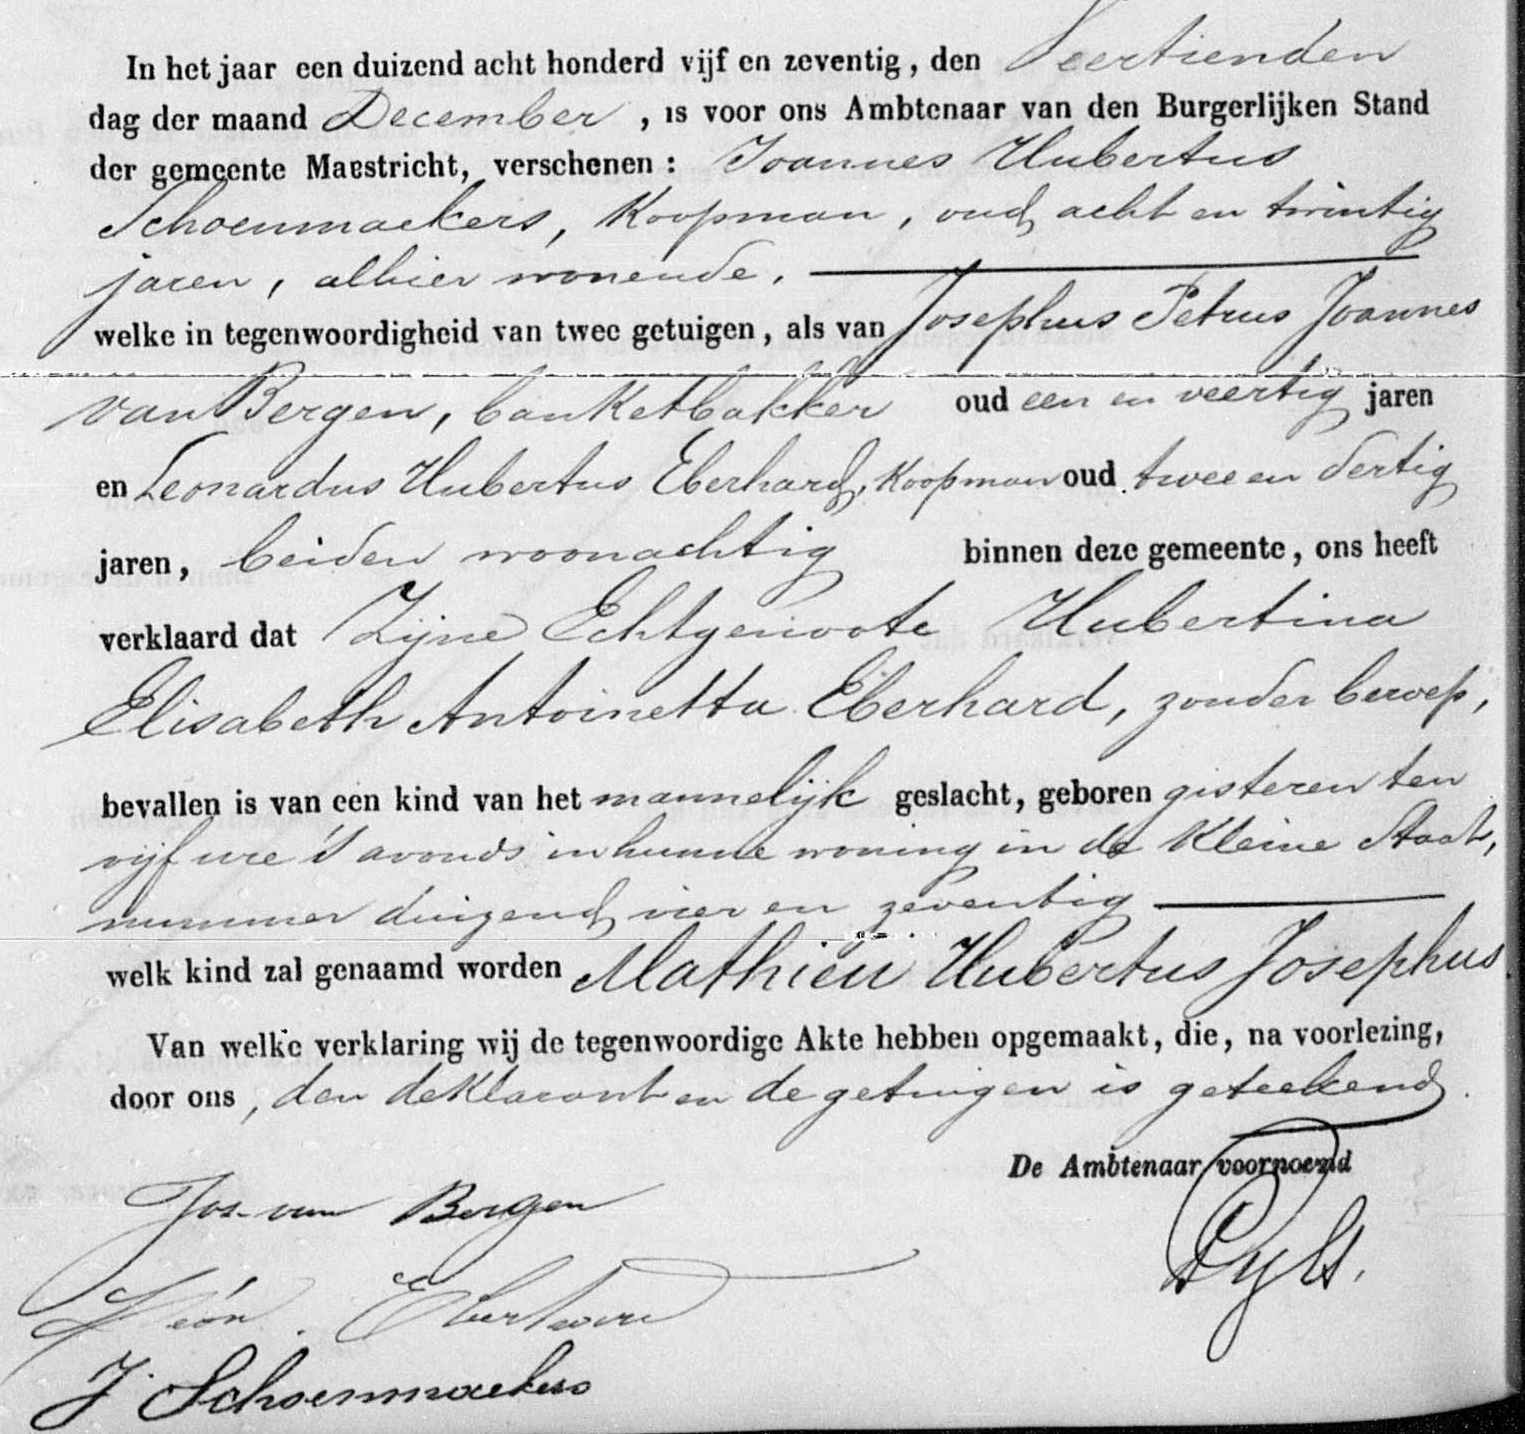 In het jaar een duizend acht honderd vijf en zeventig, den Veertienden
dag der maand December, is voor ons Ambtenaar van den Burgerlijken Stand
der gemeente Maestricht, verschenen: Joannes Hubertus
Schoenmaekers, Koopman, oud acht en twintig
jaren, alhier wonende.
welke in tegenwoordigheid van twee getuigen, als van Josephus Petrus Joannes
van Bergen, banketbakker oud een en veertig jaren
en Leonardus Hubertus Eberhard, Koopman oud twee en dertig
jaren, beiden woonachtig binnen deze gemeente, ons heeft
verklaard dat Zijne Echtgenoote Hubertina
Elisabeth Antoinetta Eberhard, zonder beroep,
bevallen is van een kind van het mannelijk geslacht, geboren gisteren ten
vijf ure 's avonds in hunne woning in de Kleine Staat,
nummer duizend vier en zeventig
welk kind zal genaamd worden Mathieu Hubertus Josephus
Van welke verklaring wij de tegenwoordige Akte hebben opgemaakt, die, na voorlezing,
door ons, den deklarant en de getuigen is geteekend.
De Ambtenaar voornoemd
Jos. van Bergen
Pyls.
Léon. Eberhard
J. Schoenmaekers